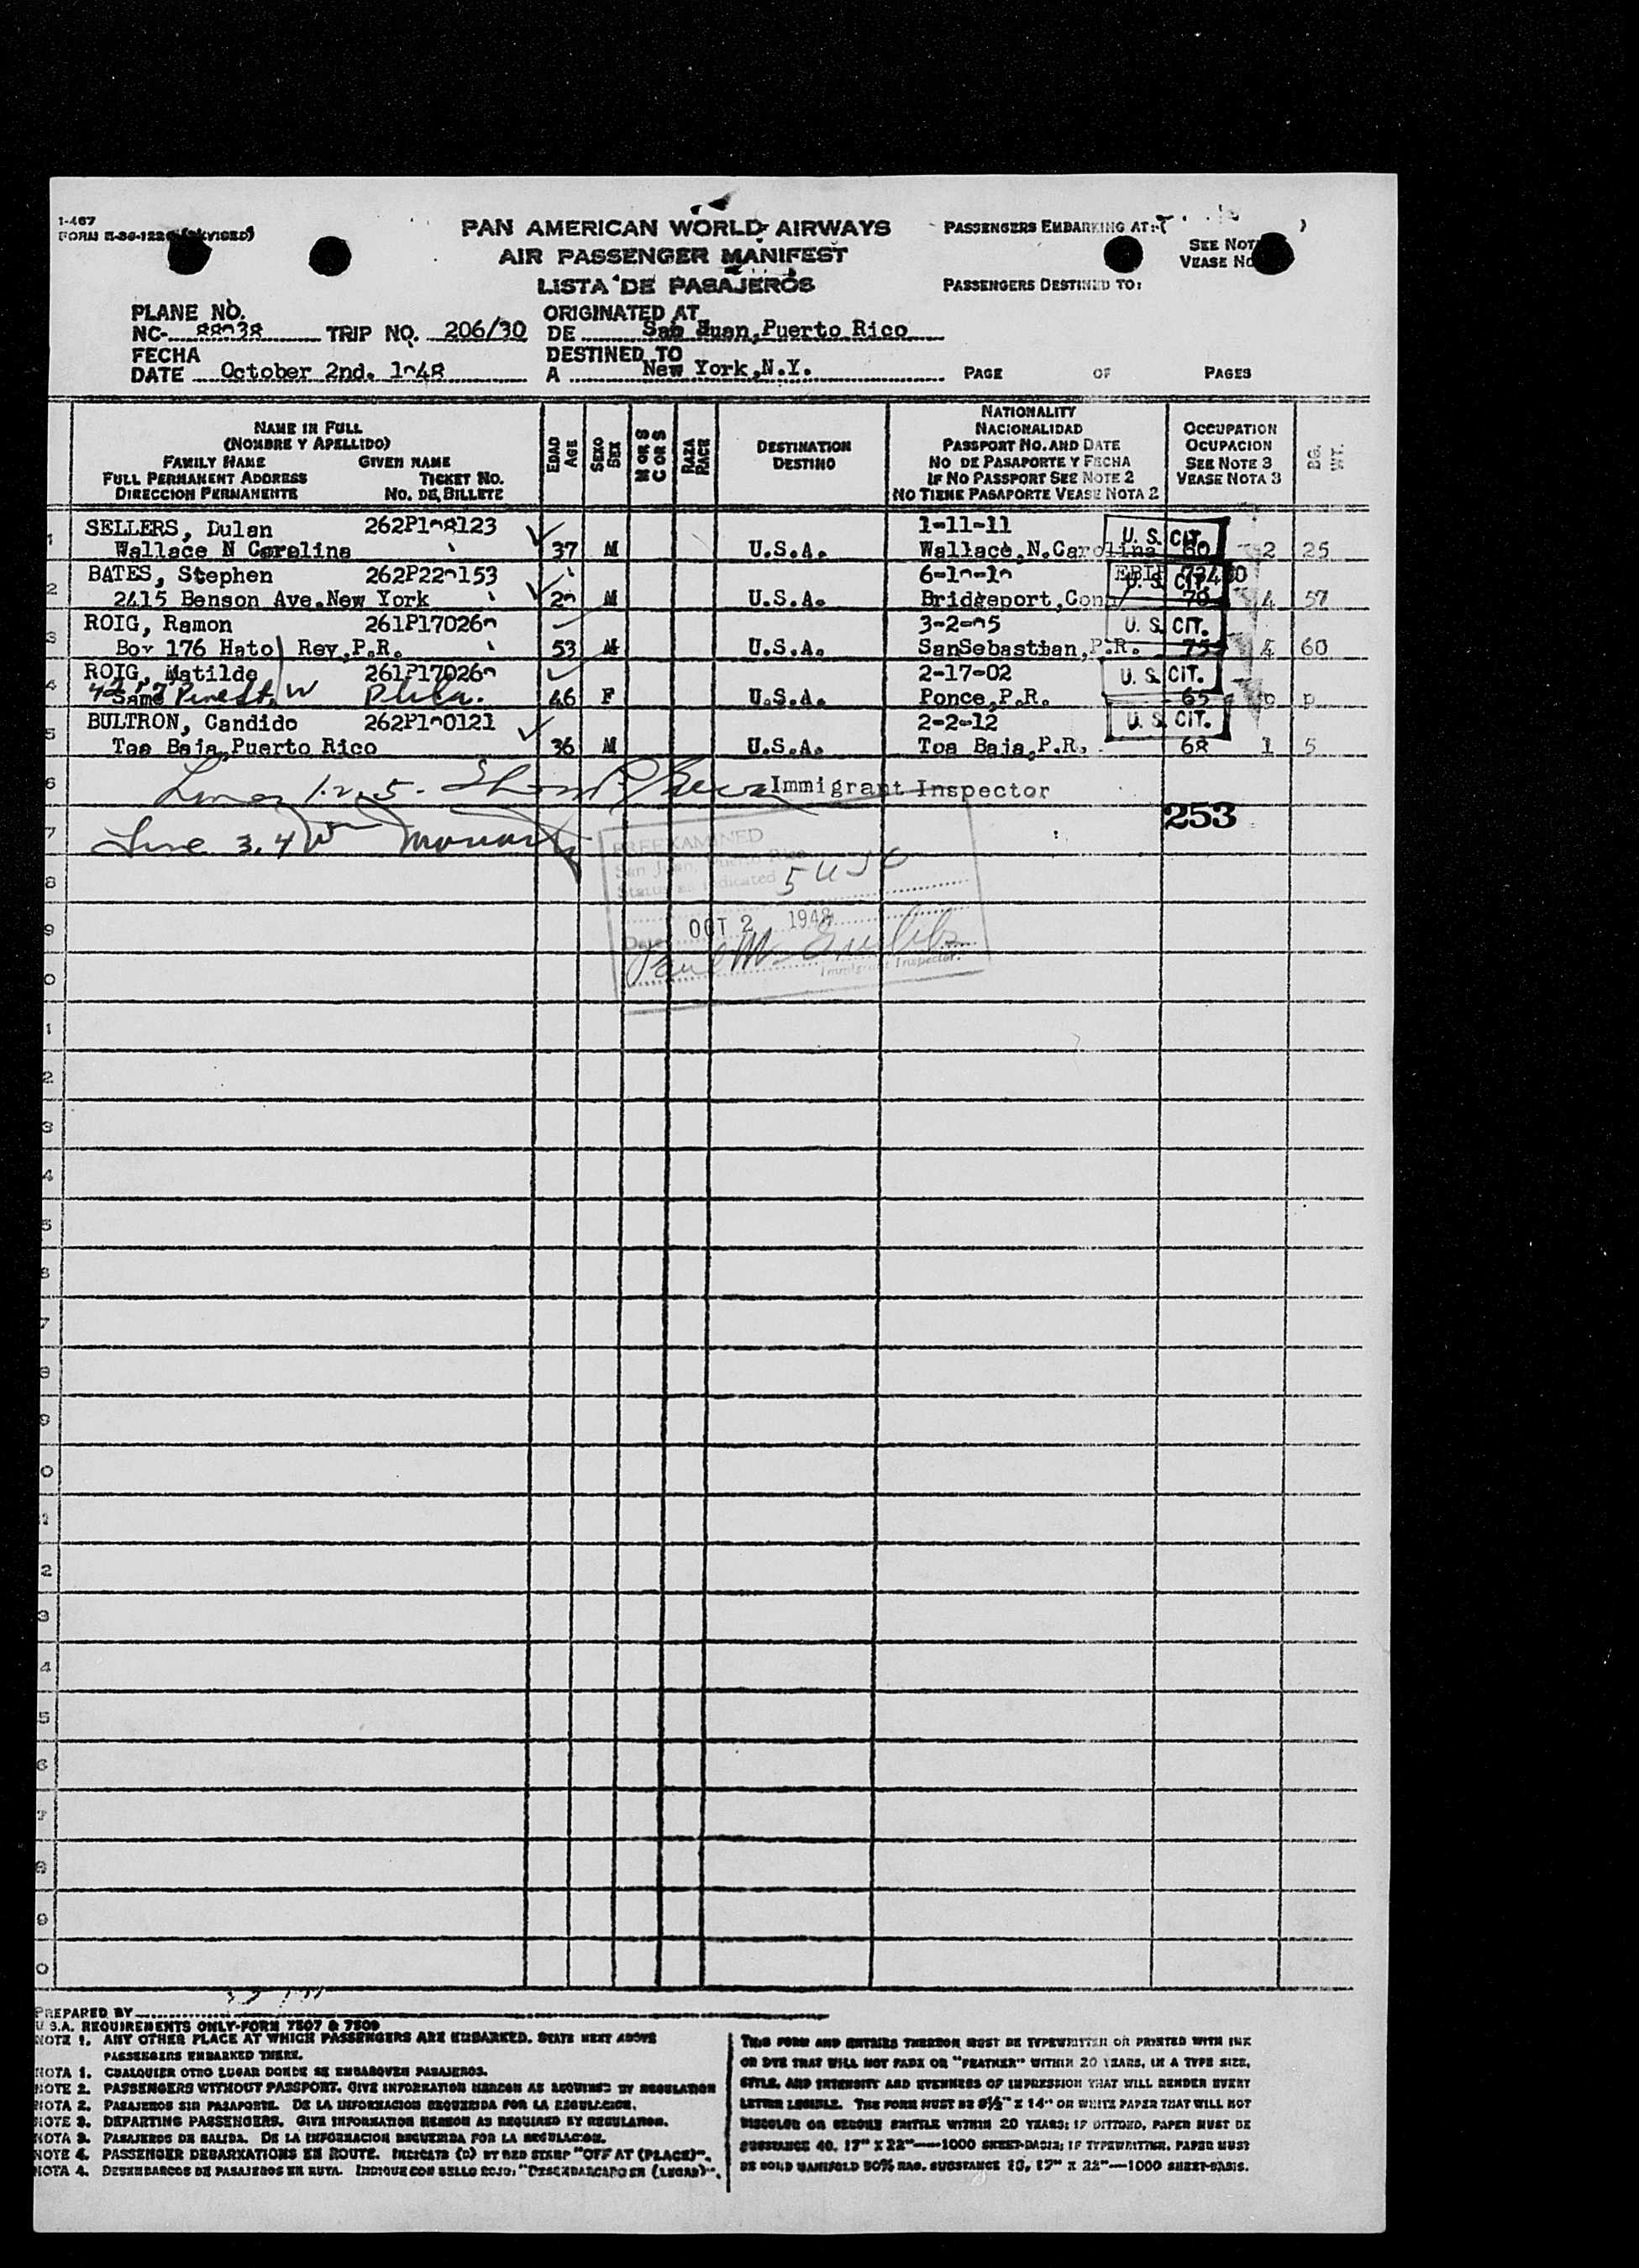 1-467
PAN AMERICAN WORLD AIRWAYS
AIR PASSENGER MANIFEST
LISTA DE PASAJEROS
PASSENGERS EMBARKING AT:
SEE NOT
VEASE NO
PASSENGERS DESTINED TO:
PLANE NO.
NC- 88038 TRIP NO. 206/30
FECHA
DATE October 2nd. 1948
ORIGINATED AT
DE San Juan, Puerto Rico
DESTINED TO
A New York, N.Y.
PAGE OF PAGES
NAME IN FULL
(NOMBRE Y APELLIDO)
FAMILY NAME GIVEN NAME
FULL PERMANENT ADDRESS TICKET NO.
DIRECCION PERMANENTE NO. DE BILLETE
EDAD AGE
SEXO SEX
M OR S C OR S
RAZA RACE
DESTINATION
DESTINO
NATIONALITY
NACIONALIDAD
PASSPORT NO. AND DATE
NO DE PASAPORTE Y FECHA
IF NO PASSPORT SEE NOTE 2
NO TIENE PASAPORTE VEASE NOTA 2
OCCUPATION
OCUPACION
SEE NOTE 3
VEASE NOTA 3
1 SELLERS, Dulan 262P108123 1-11-11 U. S. CIT.
Wallace N Carolina 37 M U.S.A. Wallace, N. Carolina 60 2 25
2 BATES, Stephen 262P220153 6-10-10 U. S. CIT.
2415 Benson Ave. New York M U.S.A. Bridgeport, Conn 4 57
3 ROIG, Ramon 261P170260 3-2-05 U. S. CIT.
Box 176 Hato Rey, P.R. 53 M U.S.A. San Sebastian, P.R. 75 4 60
4 ROIG, Matilde 261P170260 2-17-02 U. S. CIT.
Same Pine St. W Phila. 46 F U.S.A. Ponce, P.R. 65 p p
5 BULTRON, Candido 262P100121 2-2-12 U. S. CIT.
Toa Baja, Puerto Rico 36 M U.S.A. Toa Baja, P.R. 68 1 5
6 Lines 1.2.5. Immigrant Inspector
253
7 Line 3.4
PREEXAMINED
San Juan, Puerto Rico
Status as indicated 5 USC
Date OCT 2 1948
Paul M.
Immigrant Inspector
8
9
0
1
2
3
4
5
6
7
8
9
0
1
2
3
4
5
6
7
8
9
0
PREPARED BY
U.S.A. REQUIREMENTS ONLY-FORM 7507 & 7509
NOTE 1. ANY OTHER PLACE AT WHICH PASSENGERS ARE EMBARKED. STATE NEXT ABOVE
PASSENGERS EMBARKED THERE.
NOTA 1. CUALQUIER OTRO LUGAR DONDE SE EMBARQUEN PASAJEROS.
NOTE 2. PASSENGERS WITHOUT PASSPORT. GIVE INFORMATION HEREON AS REQUIRED BY REGULATION
NOTA 2. PASAJEROS SIN PASAPORTE. DE LA INFORMACION REQUERIDA POR LA REGULACION.
NOTE 3. DEPARTING PASSENGERS. GIVE INFORMATION HEREON AS REQUIRED BY REGULATION.
NOTA 3. PASAJEROS DE SALIDA. DE LA INFORMACION REQUERIDA POR LA REGULACION.
NOTE 4. PASSENGER DEBARKATIONS EN ROUTE. INDICATE (D) BY RED STAMP "OFF AT (PLACE)".
NOTA 4. DESEMBARCOS DE PASAJEROS EN RUTA. INDIQUE CON SELLO ROJO: "DESEMBARCADO EN (LUGAR)".
THIS FORM AND ENTRIES THEREON MUST BE TYPEWRITTEN OR PRINTED WITH INK
OR DYE THAT WILL NOT FADE OR "FEATHER" WITHIN 20 YEARS, IN A TYPE SIZE,
STYLE, AND INTENSITY AND EVENNESS OF IMPRESSION THAT WILL RENDER EVERY
LETTER LEGIBLE. THE FORM MUST BE 8½" X 14" ON WHITE PAPER THAT WILL NOT
DISCOLOR OR BECOME BRITTLE WITHIN 20 YEARS; IF DITTOED, PAPER MUST BE
SUBSTANCE 40, 17" X 22"—1000 SHEET-BASIS; IF TYPEWRITTEN, PAPER MUST
BE BOND MANIFOLD 50% RAG, SUBSTANCE 10, 17" X 22"—1000 SHEET-BASIS.